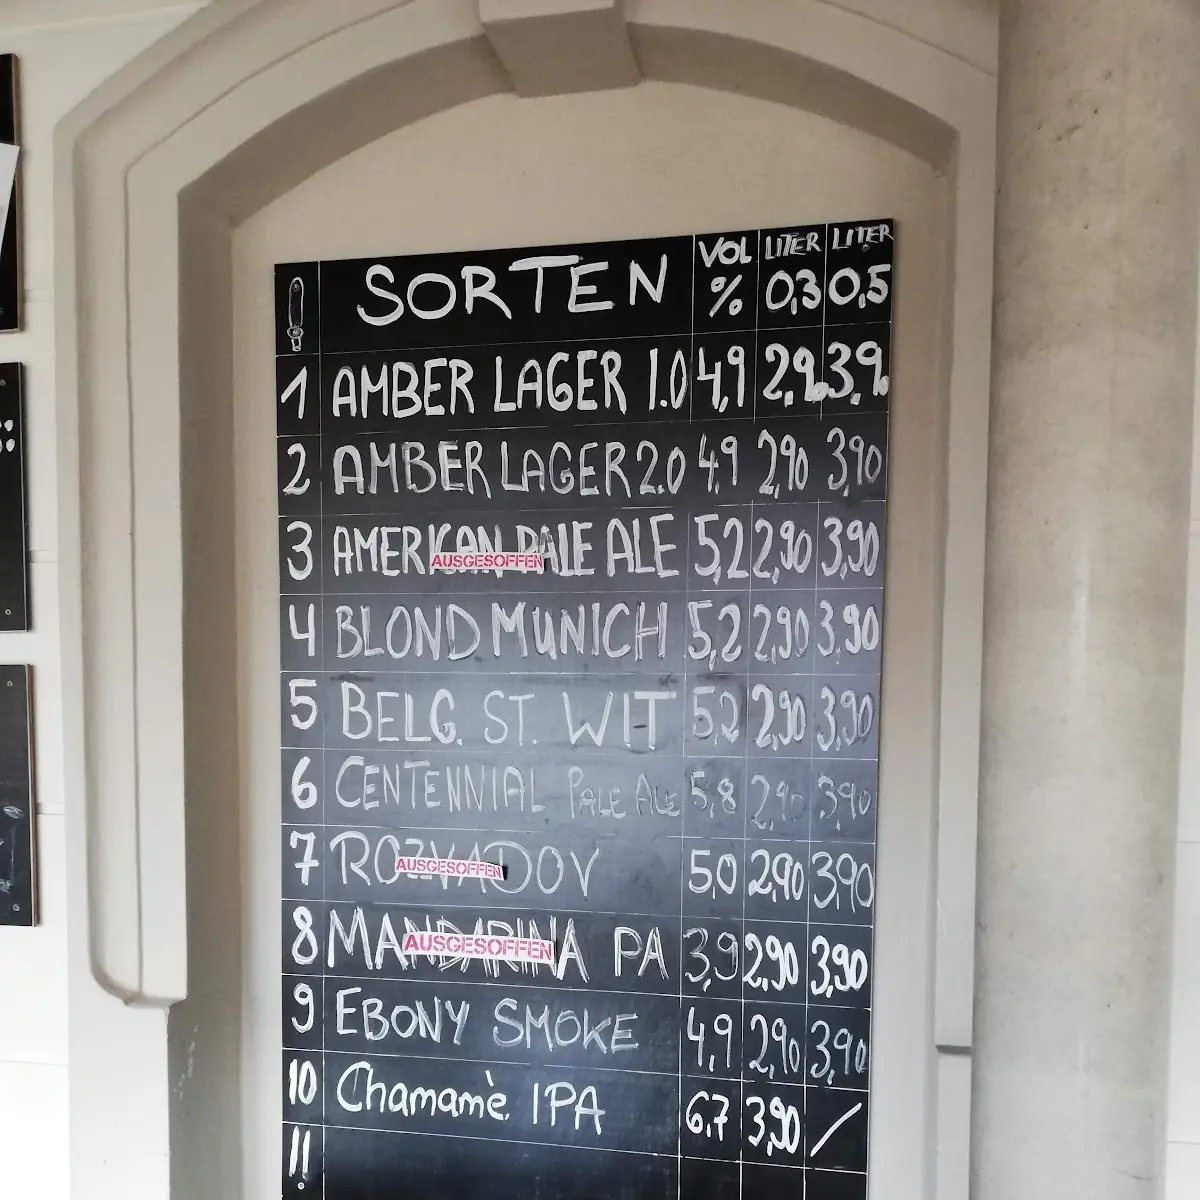 SORTEN VOL % LITER 0,3 LITER 0,5
1 AMBER LAGER 1.0 4,9 2,90 3,90
2 AMBER LAGER 2.0 4,9 2,90 3,90
3 AMERICAN PALE ALE 5,2 2,90 3,90
AUSGESOFFEN
4 BLOND MUNICH 5,2 2,90 3,90
5 BELG. ST. WIT 5,2 2,90 3,90
6 CENTENNIAL PALE ALE 5,8 2,90 3,90
7 ROZVADOV 5,0 2,90 3,90
AUSGESOFFEN
8 MANDARINA PA 3,9 2,90 3,90
AUSGESOFFEN
9 EBONY SMOKE 4,9 2,90 3,90
10 Chamamè IPA 6,7 3,90 /
11